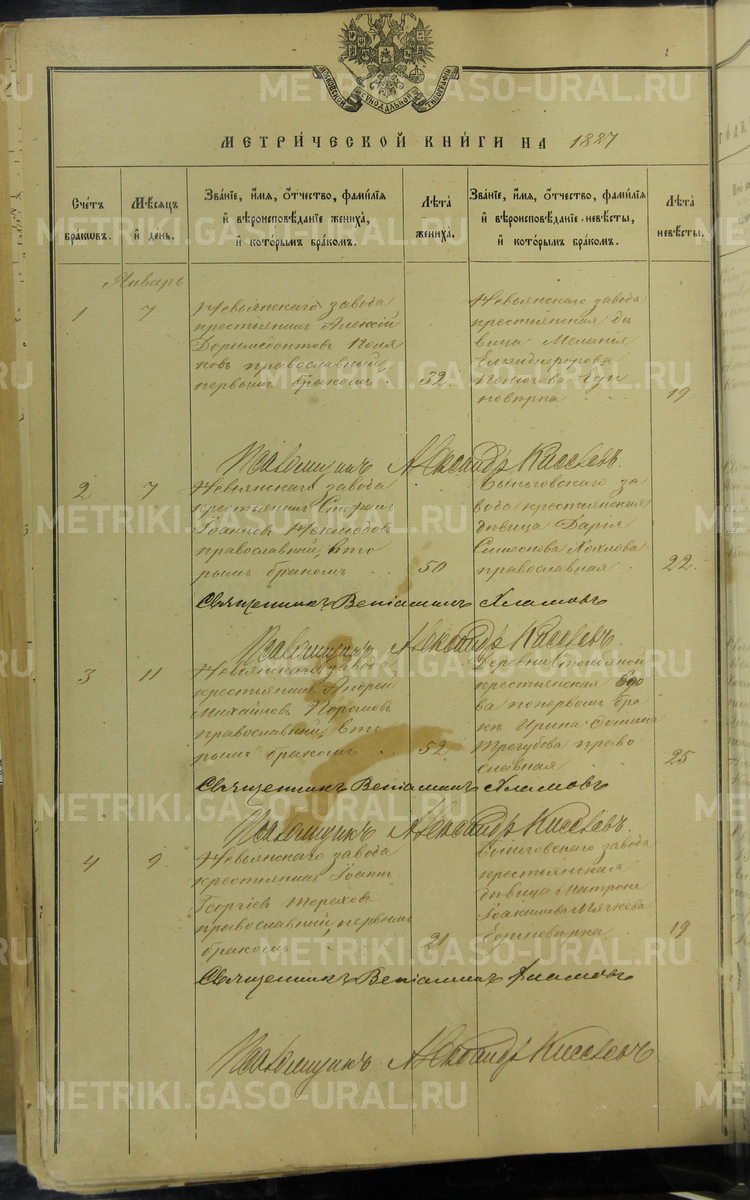 МОСКОВСКОЙ СѴНОДАЛЬНОЙ ТИПОГРАФІИ
МЕТРИ́ЧЕСКОЙ КНИ́ГИ НА 1887
Сче́тъ бра́ковъ.
Мѣ́сѧцъ и҆ де́нь.
Зва́нїе, и҆́мѧ, ѻ҆́тчество, фами́лїѧ
и҆ вѣроисповѣ́данїе жениха̀,
и҆ кото́рымъ бра́комъ.
Лѣ́та жениха̀.
Зва́нїе, и҆́мѧ, ѻ҆́тчество, фами́лїѧ
и҆ вѣроисповѣ́данїе невѣ́сты,
и҆ кото́рымъ бра́комъ.
Лѣ́та невѣ́сты.
Январь
1
7
Невьянскаго завода
крестьянинъ Алексій
Доримедонтовъ Поля
ковъ православный,
первымъ бракомъ
32
Невьянскаго завода
крестьянская дѣ
вица Меланія
Еди
новѣрка
19
Псаломщикъ Александръ Киселевъ.
2
7
Невьянскаго завода
крестьянинъ Стефанъ
Іоанновъ
православный, вто
рымъ бракомъ
50
Быньговскаго за
вода крестьянская
дѣвица Дарія
Симеонова Хохлова
православная
22
Священникъ Веніаминъ Хламовъ
Псаломщикъ Александръ Киселевъ.
3
11
Невьянскаго завода
крестьянинъ Андрей
Михайловъ
православный, вто
рымъ бракомъ
52
Деревни
крестьянская вдо
ва по первомъ бра
кѣ Ирина Фомина
Трегубова право
славная
25
Священникъ Веніаминъ Хламовъ
Псаломщикъ Александръ Киселевъ.
4
9
Невьянскаго завода
крестьянинъ Іоаннъ
Георгіевъ Тереховъ
православный, первымъ
бракомъ
21
Быньговскаго завода
крестьянская
дѣвица Матрона
Іоакимова Мягкова
Единовѣрка
19
Священникъ Веніаминъ Хламовъ
Псаломщикъ Александръ Киселевъ.
METRIKI.GASO-URAL.RU